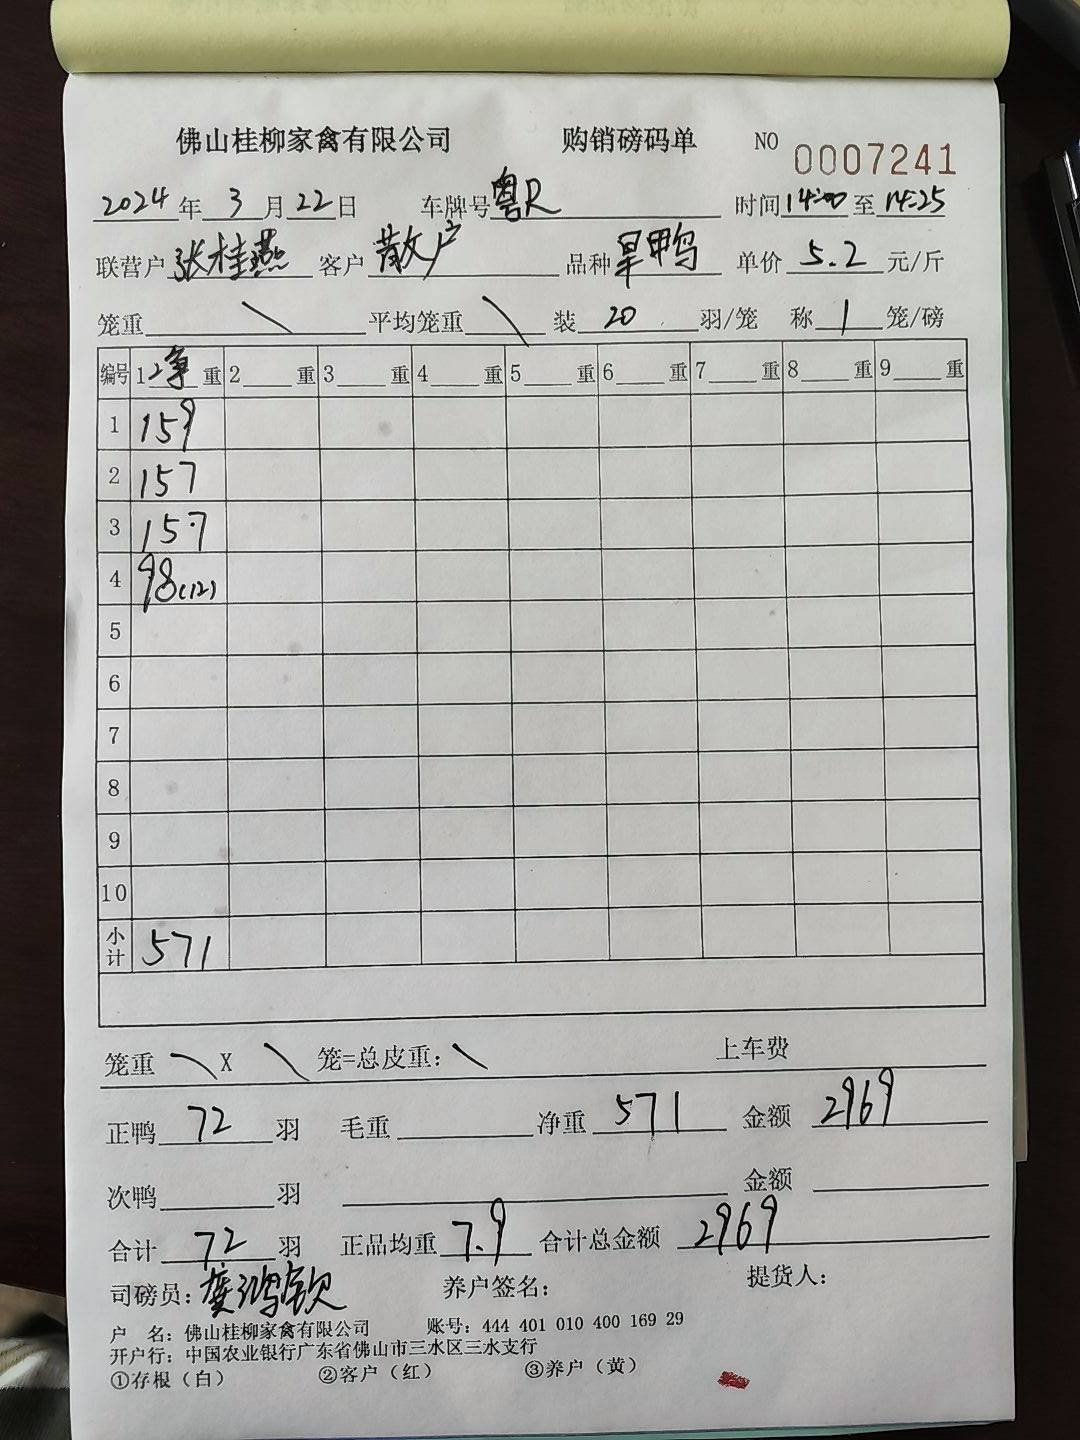 佛山桂柳家禽有限公司 购销磅码单 NO 0007241
2024年3月22日 车牌号粤R 时间14:00至14:25
联营户张桂燕 客户散户 品种旱鸭 单价5.2元/斤
笼重\ 平均笼重\ 装20羽/笼 称1笼/磅
编号 1净重 2重 3重 4重 5重 6重 7重 8重 9重
1 159
2 157
3 157
4 98(12)
5
6
7
8
9
10
小计 571
笼重\X\笼=总皮重:\ 上车费
正鸭72羽 毛重 净重571 金额2969
次鸭 羽 金额
合计72羽 正品均重7.9 合计总金额2969
司磅员:龚鸿钦 养户签名: 提货人:
户 名:佛山桂柳家禽有限公司 账号:444 401 010 400 169 29
开户行:中国农业银行广东省佛山市三水区三水支行
①存根(白) ②客户(红) ③养户(黄)